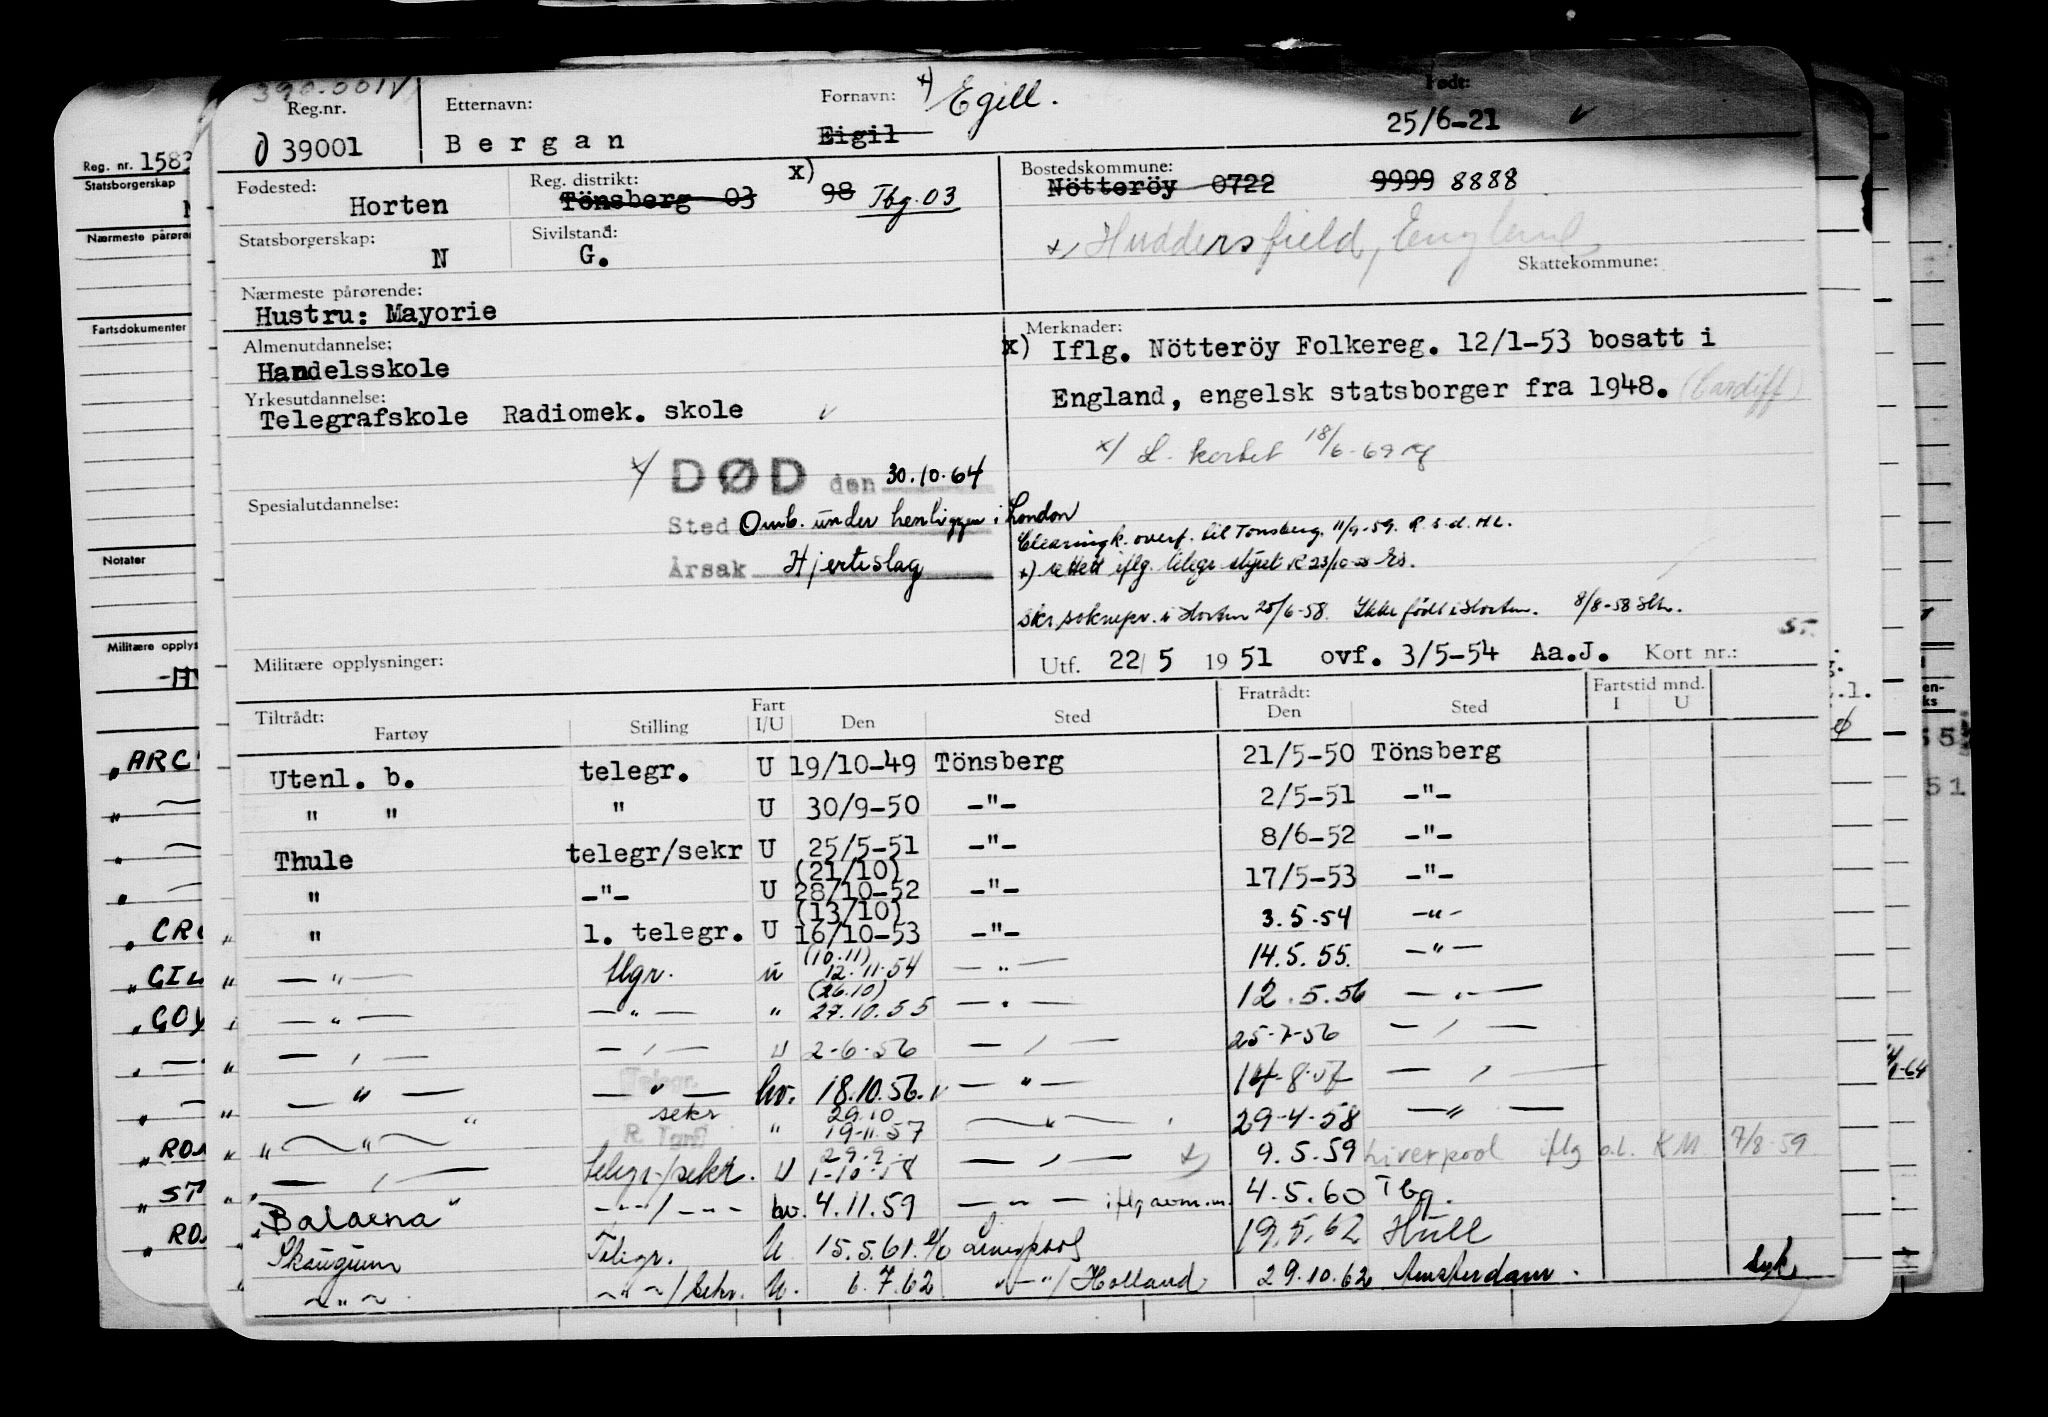 390.001 V
Reg.nr. Etternavn: Fornavn: x) Egill. Født:
39001 Bergan Eigil 25/6-21 v
Fødested: Reg. distrikt: x) Bostedskommune:
Horten Tönsberg 03 98 Tbg. 03 Nötteröy 0722 9999 8888
Statsborgerskap: Sivilstand: x) Huddersfield, England
N G. Skattekommune:
Nærmeste pårørende:
Hustru: Mayorie
Merknader:
Almenutdannelse: x) Iflg. Nötteröy Folkereg. 12/1-53 bosatt i
Handelsskole
Yrkesutdannelse: England, engelsk statsborger fra 1948. (Cardiff)
Telegrafskole Radiomek. skole v
x) L. kortet 18/6-69
x) DØD den 30.10.64
Spesialutdannelse:
Sted Omb. under henliggen i London
Clearingk. overf. til Tönsberg. 11/9-59. R.s.d. HL.
Årsak Hjerteslag
x) rettet iflg. telegr. styret
skr. sokneprest i Horten 25/6-58. Ikke født i Horten. 8/8-58
Militære opplysninger:
Utf. 22/5 1951 ovf. 3/5-54 Aa.J. Kort nr.:
Tiltrådt: Fart Fratrådt: Fartstid mnd.
Fartøy Stilling I/U Den Sted Den Sted I U
Utenl. b. telegr. U 19/10-49 Tönsberg 21/5-50 Tönsberg
" " " U 30/9-50 -"- 2/5-51 -"-
Thule telegr/sekr U 25/5-51 -"- 8/6-52 -"-
(21/10)
" -"- U 28/10-52 -"- 17/5-53 -"-
(13/10)
" 1. telegr. U 16/10-53 -"- 3.5.54 -"-
(10.11)
" - " - tlgr. u 12.11.54 - " - 14.5.55. - " -
(26.10)
" - " - - " - " 27.10.55 - " - 12.5.56 - " -
" - " - - " - U 2-6-56 - " - 25-7-56 - " -
Telegr.
" - " - - " - hv. 18.10.56. v - " - 14-8-57 - " -
sekr 29.10
" - " - " " 19-11.57 - " - 29-4-58 - " -
29.9
" - " - telegr/sekr. U 1-10-58 - " - x) 9.5.59 Liverpool iflg o.l. KM 7/8-59
"Balaena" - " - / - " - hv. 4.11.59 - " - iflg avm.m. 4.5.60 Tbg.
Skaugum Telegr. U. 15.5.61. Liverpool 19.5.62 Hull
- " - - " - / sekr. U. 6.7.62 - " - / Holland 29.10.62 Amsterdam. Syk
Reg. nr. 1583
Statsborgerskap
Nærmeste pårøre
Fartsdokumenter
Notater
Militære opplys
"ARC
"CRO
"GIL
"GOY
"ROS
"ST
"ROS